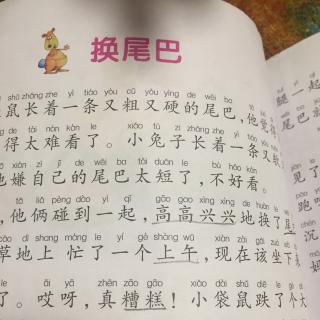 换尾巴
shǔ zhǎng zhe yì tiáo yòu cū yòu yìng de wěi ba
鼠长着一条又粗又硬的尾巴，他觉得
de tài nán kàn le xiǎo tù zi zhǎng zhe yì
得太难看了。小兔子长着一条又软
xián zì jǐ de wěi ba tài duǎn le bù hǎo kàn
嫌自己的尾巴太短了，不好看。
tā liǎ pèng dào yì qǐ gāo gāo xìng xìng de huàn le
，他俩碰到一起，高高兴兴地换了尾
cǎo dì shang máng le yí gè shàng wǔ xiàn zài gāi zuò xia
草地上 忙了一个上午，现在该坐下
le āi yā zhēn zāo gāo xiǎo dài shǔ diē le gè dà
了。哎呀，真糟糕！小袋鼠跌了个大
腿一起
尾巴
跑
沉